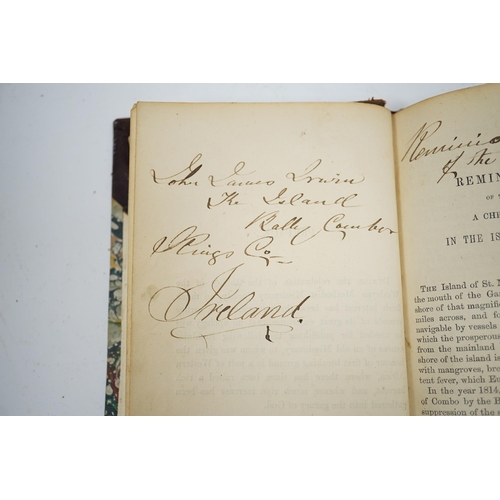 John James Irwin
The Island
Bally Comber
Kings Co
Ireland.
Reminis
of the
REMIN
OF
A CHR
IN THE IS
THE Island of St. M
the mouth of the Ga
shore of that magnifi
miles across, and fo
navigable by vessels
which the prosperous
from the mainland
shore of the island is
with mangroves, bre
tent fever, which Eu
In the year 1814,
of Combo by the B
suppression of the s